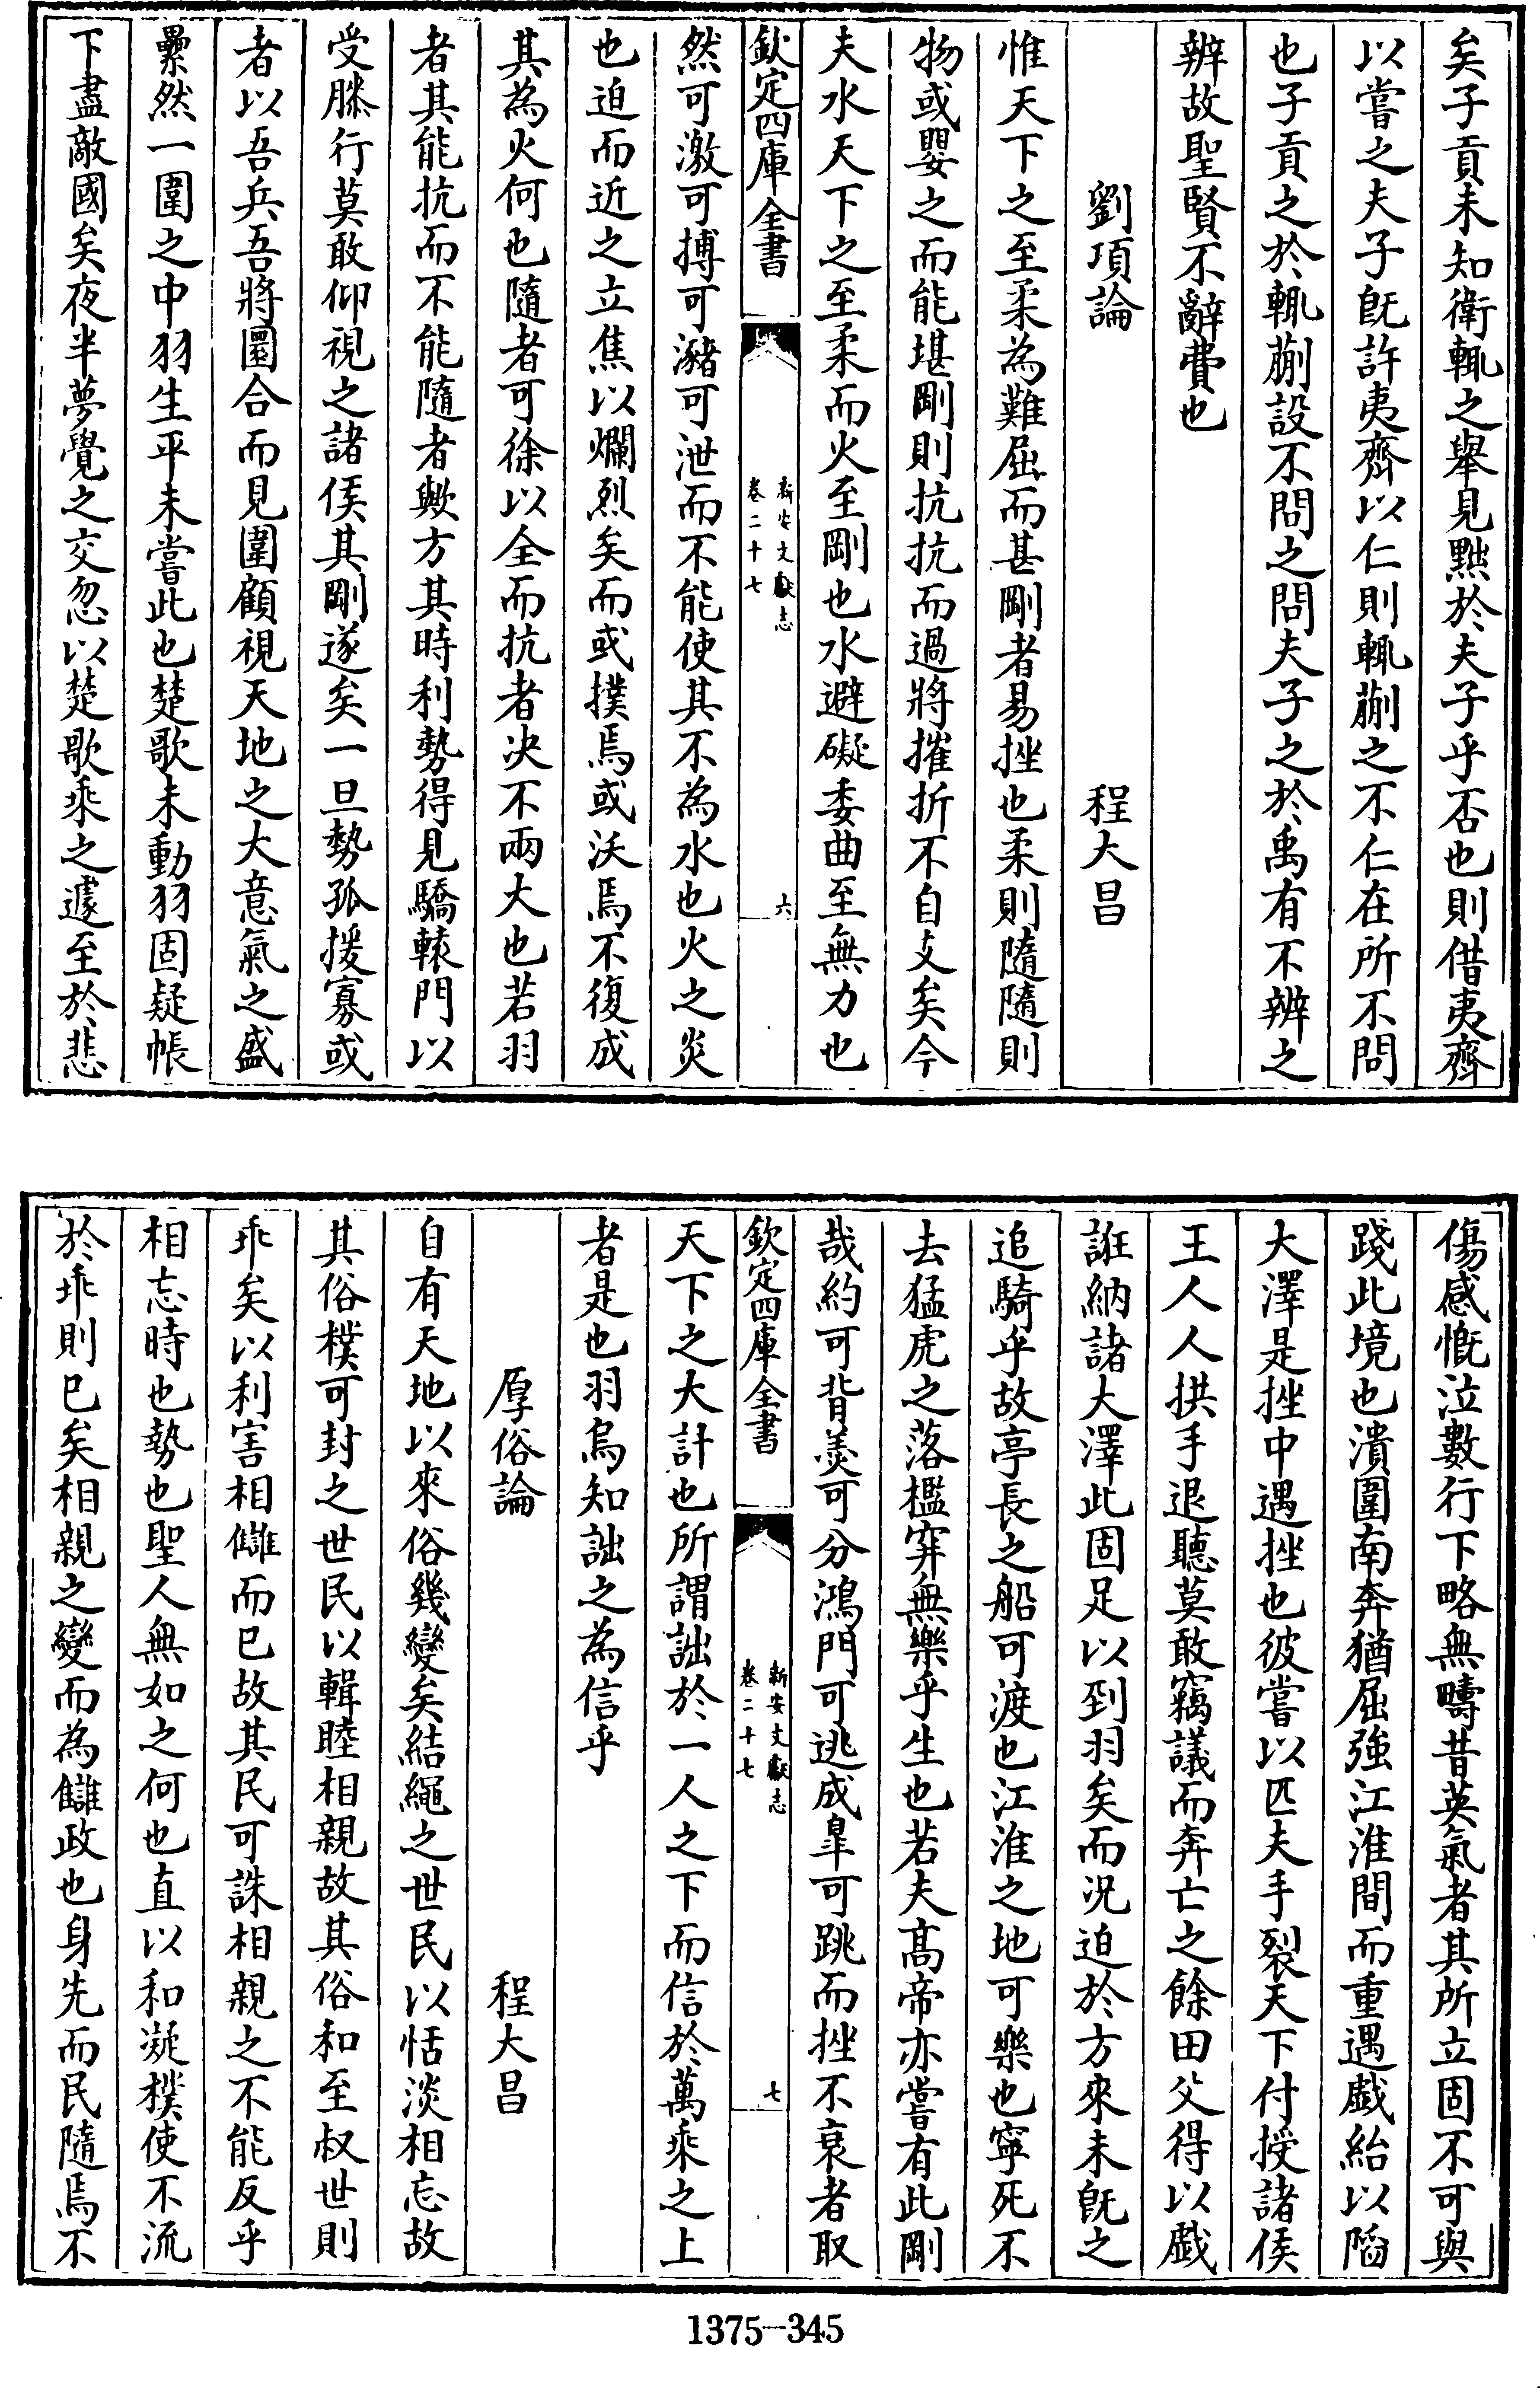 矣子貢未知衛輒之舉見黜於夫子乎否也則借夷齊
以嘗之夫子既許夷齊以仁則輒蒯之不仁在所不問
也子貢之於輒蒯設不問之問夫子之於禹有不辨之
辨故聖賢不辭費也
劉項論　程大昌
惟天下之至柔為難屈而甚剛者易挫也柔則隨隨則
物或嬰之而能堪剛則抗抗而過將摧折不自支矣今
夫水天下之至柔而火至剛也水避礙委曲至無力也
欽定四庫全書
新安文獻志
卷二十七
六
然可激可搏可瀦可泄而不能使其不為水也火之炎
也迫而近之立焦以爛烈矣而或撲焉或沃焉不復成
其為火何也隨者可徐以全而抗者决不兩大也若羽
者其能抗而不能隨者歟方其時利勢得見驕轅門以
受膝行莫敢仰視之諸侯其剛遂矣一旦勢孤援寡或
者以吾兵吾將圜合而見圍顧視天地之大意氣之盛
纍然一圍之中羽生平未嘗此也楚歌未動羽固疑帳
下盡敵國矣夜半夢覺之交忽以楚歌乘之遽至於悲
傷感慨泣數行下略無疇昔英氣者其所立固不可與
踐此境也潰圍南奔猶屈強江淮間而重遇戲紿以䧟
大澤是挫中遇挫也彼嘗以匹夫手裂天下付授諸侯
王人人拱手退聽莫敢竊議而奔亡之餘田父得以戲
誑納諸大澤此固足以到羽矣而况迫於方來未旣之
追騎乎故亭長之船可渡也江淮之地可樂也寧死不
去猛虎之落檻穽無樂乎生也若夫髙帝亦嘗有此剛
哉約可背羮可分鴻門可逃成臯可跳而挫不衰者取
欽定四庫全書
新安文獻志
卷二十七
七
天下之大計也所謂詘於一人之下而信於萬乘之上
者是也羽烏知詘之為信乎
厚俗論　程大昌
自有天地以來俗幾變矣結繩之世民以恬淡相忘故
其俗樸可封之世民以輯睦相親故其俗和至叔世則
乖矣以利害相讎而已故其民可誅相親之不能反乎
相忘時也勢也聖人無如之何也直以和凝樸使不流
於乖則已矣相親之變而為讎政也身先而民隨焉不
1375-345